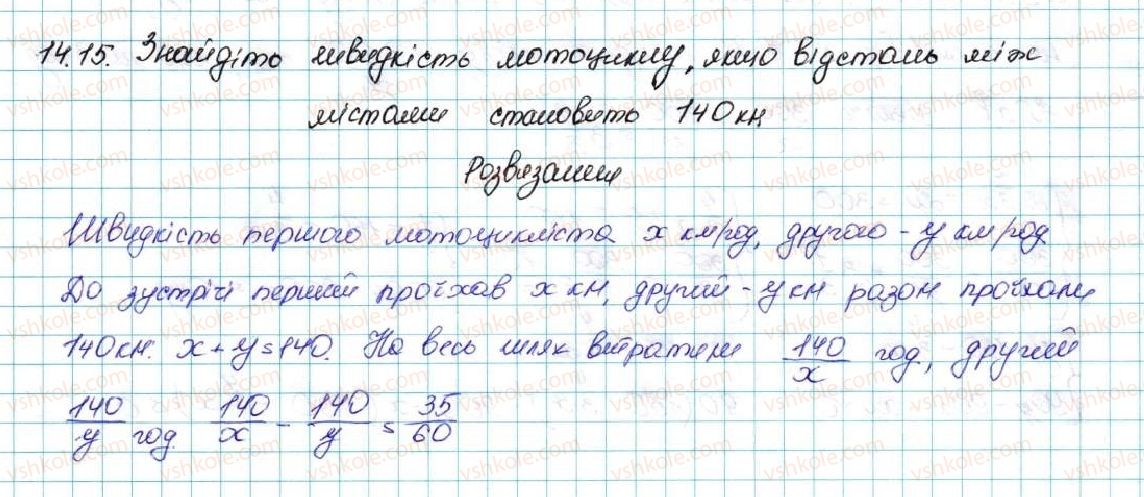 14.15. Знайдіть швидкість мотоциклу, якщо відстань між
містами становить 140 км
Розвязання
Швидкість першого мотоцикліста x км/год, другого - y км/год
До зустрічі перший проїхав x км, другий - y км разом проїхали
140 км. x + y = 140. На весь шлях витратили 140/x год, другий
140/y год. 140/x - 140/y = 35/60